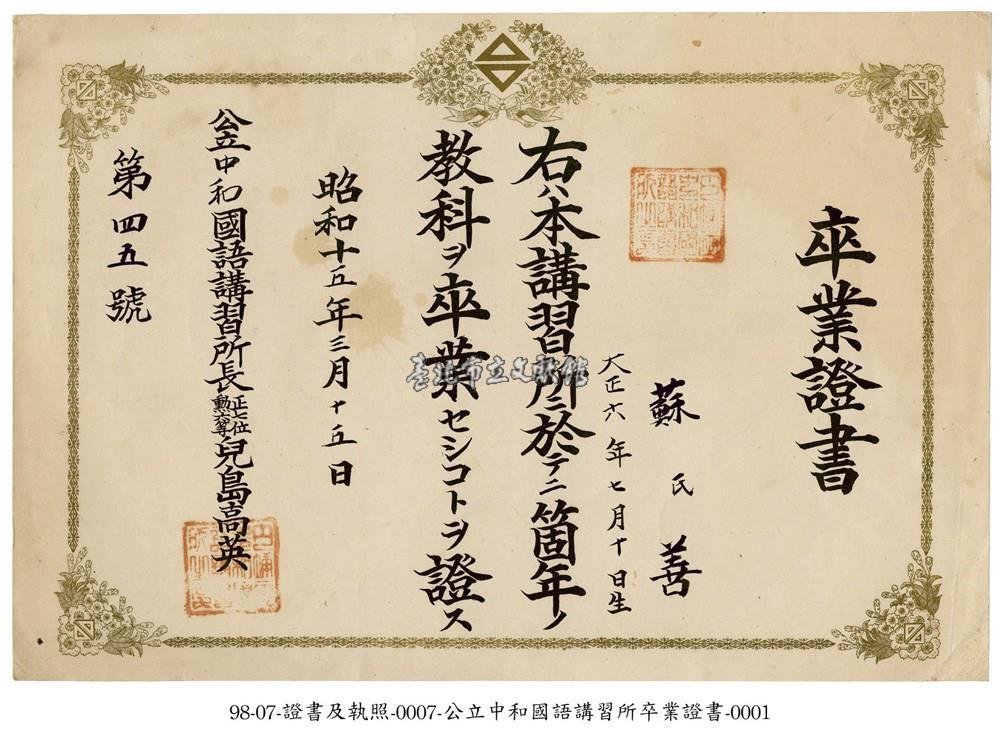 卒業證書
蘇氏善
大正六年七月十日生
右ハ本講習所ニ於テ二箇年ノ
教科ヲ卒業セシコトヲ證ス
昭和十五年三月十五日
公立中和國語講習所長正七位勲六等兒島高英
第四五號
臺北市立文獻館
98-07-證書及執照-0007-公立中和國語講習所卒業證書-0001